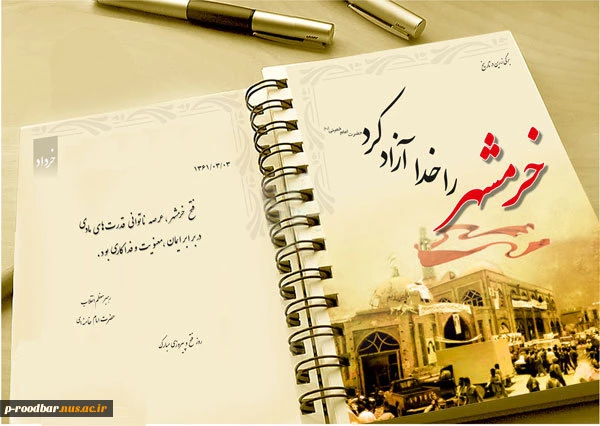 برگی زرین در تاریخ
خرمشهر
را خدا آزاد کرد
حضرت امام خمینی
خرداد
۱۳۶۱/۰۳/۰۳
فتح خرمشهر، عرصه ناتوانی قدرت‌های مادی
در برابر ایمان، معنویت و فداکاری بود.
رهبر معظم انقلاب
حضرت امام خامنه‌ای
روز فتح و پیروزی مبارک
p-roodbar.nus.ac.ir